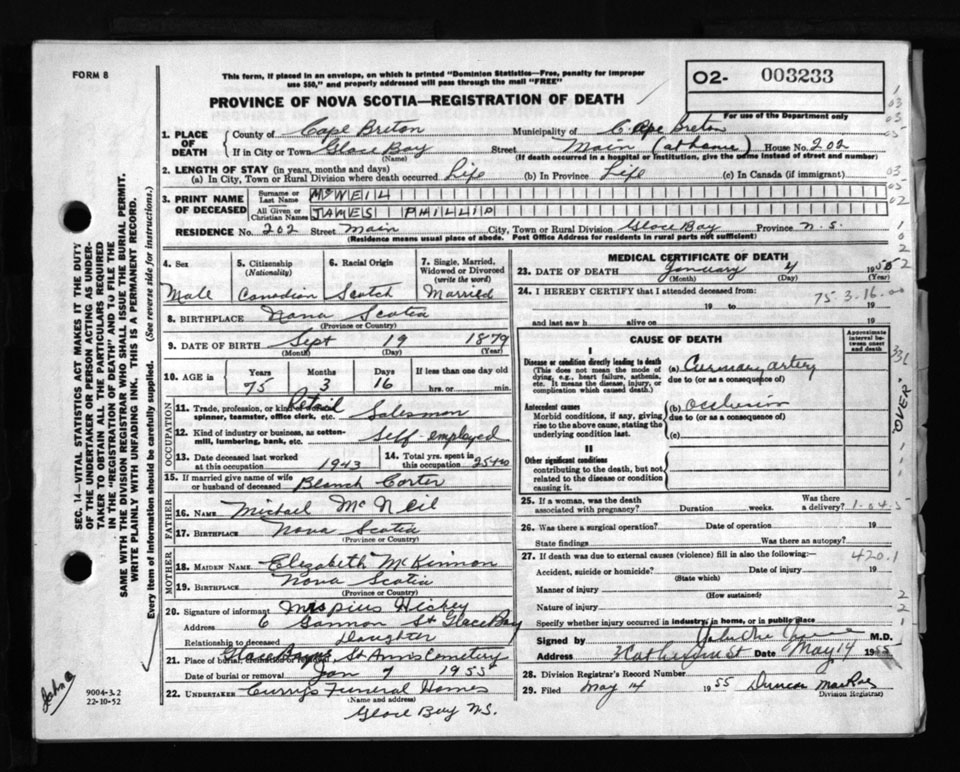 FORM 8
This form, if placed in an envelope, on which is printed "Dominion Statistics—Free, penalty for improper
use $50," and properly addressed will pass through the mail "FREE"
PROVINCE OF NOVA SCOTIA—REGISTRATION OF DEATH
02- 003233
For use of the Department only
1. PLACE OF DEATH County of Cape Breton Municipality of Cape Breton
If in City or Town Glace Bay Street Main (at home) House No. 202
(Name) (If death occurred in a hospital or institution, give the name instead of street and number)
2. LENGTH OF STAY (in years, months and days)
(a) In City, Town or Rural Division where death occurred Life (b) In Province Life (c) In Canada (if immigrant)
3. PRINT NAME OF DECEASED Surname or Last Name McNEIL
All Given or Christian Names JAMES PHILLIP
RESIDENCE No. 202 Street Main City, Town or Rural Division Glace Bay Province N.S.
(Residence means usual place of abode. Post Office Address for residents in rural parts not sufficient)
4. Sex Male
5. Citizenship (Nationality) Canadian
6. Racial Origin Scotch
7. Single, Married, Widowed or Divorced (write the word) Married
8. BIRTHPLACE Nova Scotia
(Province or Country)
9. DATE OF BIRTH Sept 19 1879
(Month) (Day) (Year)
10. AGE in Years Months Days If less than one day
75 3 16 hrs. or min.
OCCUPATION
11. Trade, profession, or kind Retail Salesman
spinner, teamster, office clerk, etc.
12. Kind of industry or business, as cotton-
mill, lumbering, bank, etc. Self-employed
13. Date deceased last worked at this occupation 1943
14. Total yrs. spent in this occupation 25 yrs
15. If married give name of wife or husband of deceased Blanch Carter
FATHER
16. NAME Michael McNeil
17. BIRTHPLACE Nova Scotia
(Province or Country)
MOTHER
18. MAIDEN NAME Elizabeth McKinnon
19. BIRTHPLACE Nova Scotia
(Province or Country)
20. Signature of informant Mrs Pius Hickey
Address 6 Gannon St Glace Bay
Relationship to deceased Daughter
21. Place of burial, cremation or removal Glace Bay NS, St Ann's Cemetery
Date of burial or removal Jan 7 1955
22. UNDERTAKER Curry's Funeral Homes
(Name and address)
Glace Bay N.S.
MEDICAL CERTIFICATE OF DEATH
23. DATE OF DEATH January 4 1955
(Month) (Day) (Year)
24. I HEREBY CERTIFY that I attended deceased from:
75 3-16
19 to 19
and last saw h alive on 19
CAUSE OF DEATH
Approximate interval between onset and death
I
Disease or condition directly leading to death
(This does not mean the mode of
dying, e.g., heart failure, asthenia,
etc. It means the disease, injury, or
complication which caused death.)
(a) Coronary artery
due to (or as a consequence of)
Antecedent causes
Morbid conditions, if any, giving
rise to the above cause, stating the
underlying condition last.
(b) Occlusion
due to (or as a consequence of)
(c)
II
Other significant conditions
contributing to the death, but not
related to the disease or condition
causing it.
25. If a woman, was the death associated with pregnancy? Duration weeks. Was there a delivery?
1-04-5
26. Was there a surgical operation? Date of operation 19
State findings Was there an autopsy?
27. If death was due to external causes (violence) fill in also the following:—
420.1
Accident, suicide or homicide? Date of injury 19
(State which)
Manner of injury
(How sustained)
Nature of injury
Specify whether injury occurred in industry, in home, or in public place
Signed by M.D.
Address Catherine St Date May 14 1955
28. Division Registrar's Record Number
29. Filed May 14 1955 Duncan MacRae
Division Registrar
"OVER"
SEC. 14—VITAL STATISTICS ACT MAKES IT THE DUTY
OF THE UNDERTAKER OR PERSON ACTING AS UNDER-
TAKER TO OBTAIN ALL THE PARTICULARS REQUIRED
IN THE "REGISTRATION OF DEATH" AND TO FILE THE
SAME WITH THE DIVISION REGISTRAR WHO SHALL ISSUE THE BURIAL PERMIT.
WRITE PLAINLY WITH UNFADING INK. THIS IS A PERMANENT RECORD.
Every item of information should be carefully supplied. (See reverse side for instructions.)
9004-3.2
22-10-52